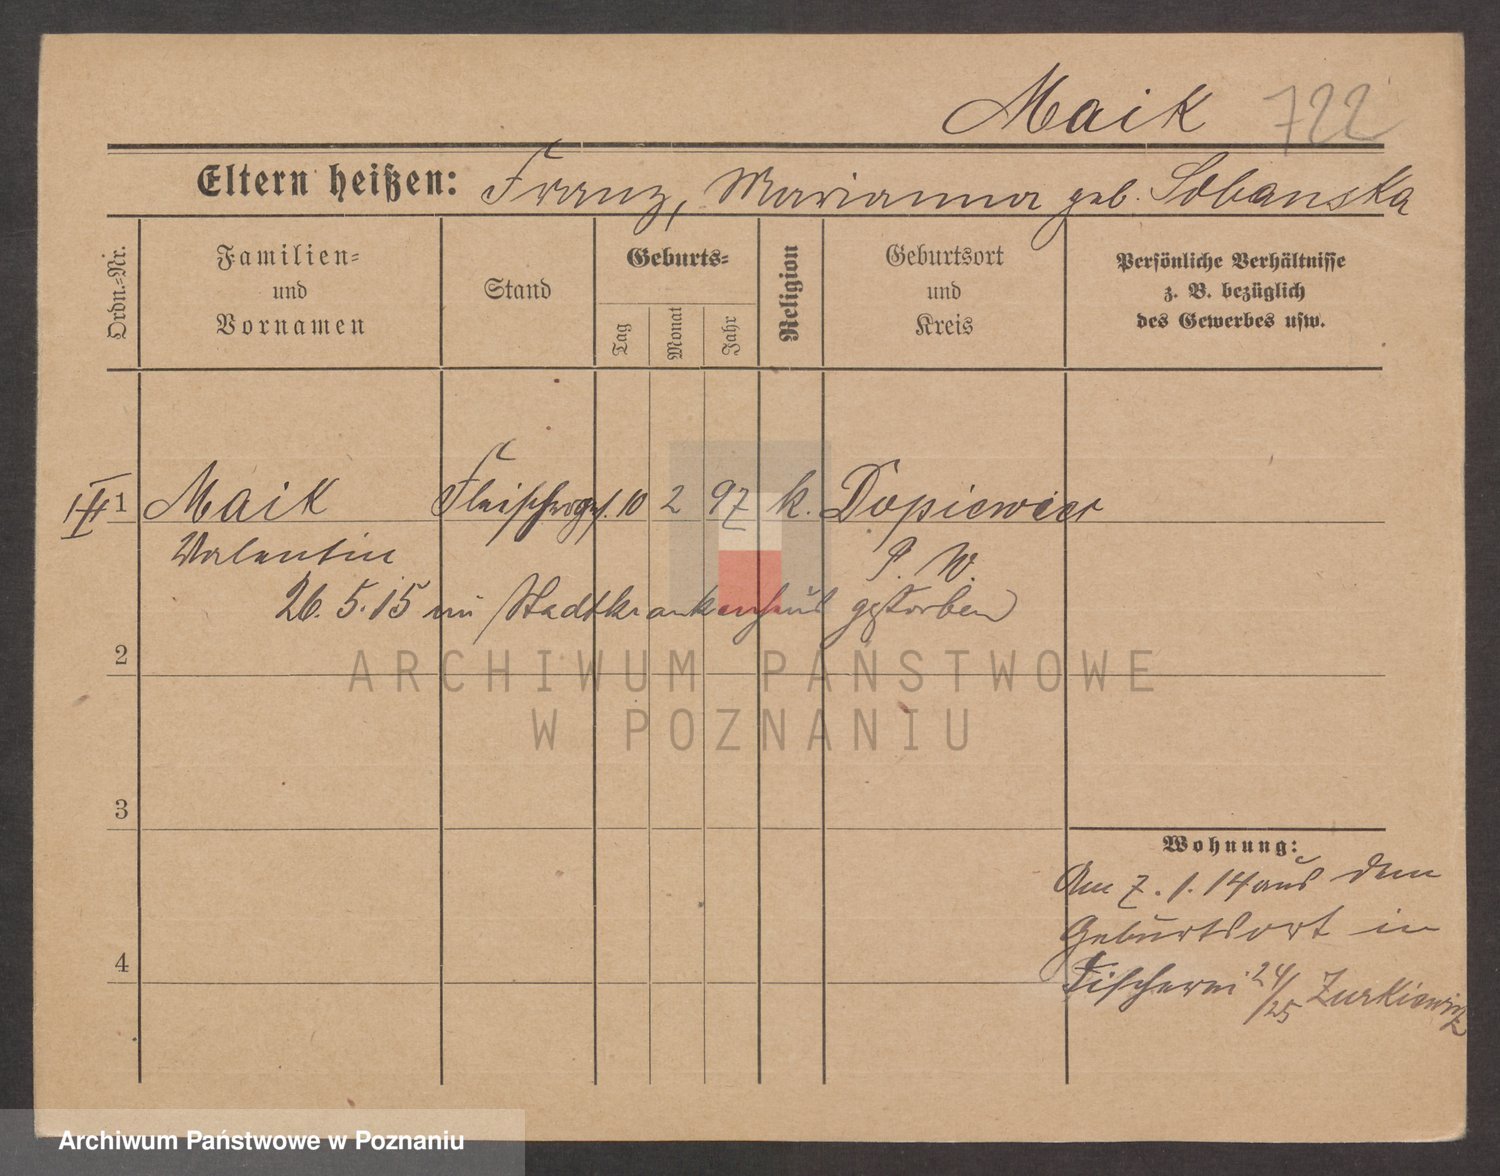 Maik 722
Eltern heißen: Franz, Marianna geb. Sobanska
Ordn.-Nr.
Familien-
und
Vornamen
Stand
Geburts-
Tag
Monat
Jahr
Religion
Geburtsort
und
Kreis
Persönliche Verhältnisse
z. B. bezüglich
des Gewerbes usw.
1 Maik Fleischerges. 10 2 97 k. Dopiewiec
Valentin P. W.
26.5.15 im Stadtkrankenhaus gestorben
2
3
4
Wohnung:
Am 7.1.14 aus dem
Geburtsort in
Fischerei 24/25 Zurkiewicz
ARCHIWUM PAŃSTWOWE
W POZNANIU
Archiwum Państwowe w Poznaniu